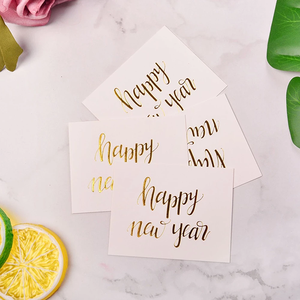 happy
year
new
New
happy
new
happy
new year